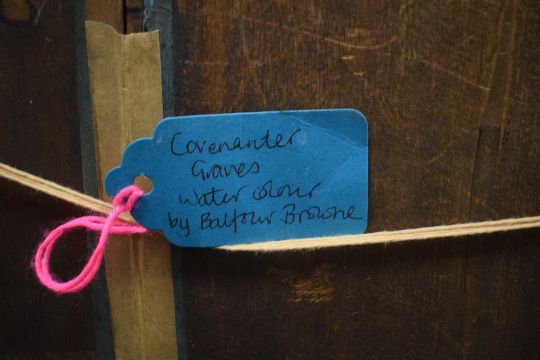 Covenanter
Graves
Water colour
by Balfour Browne